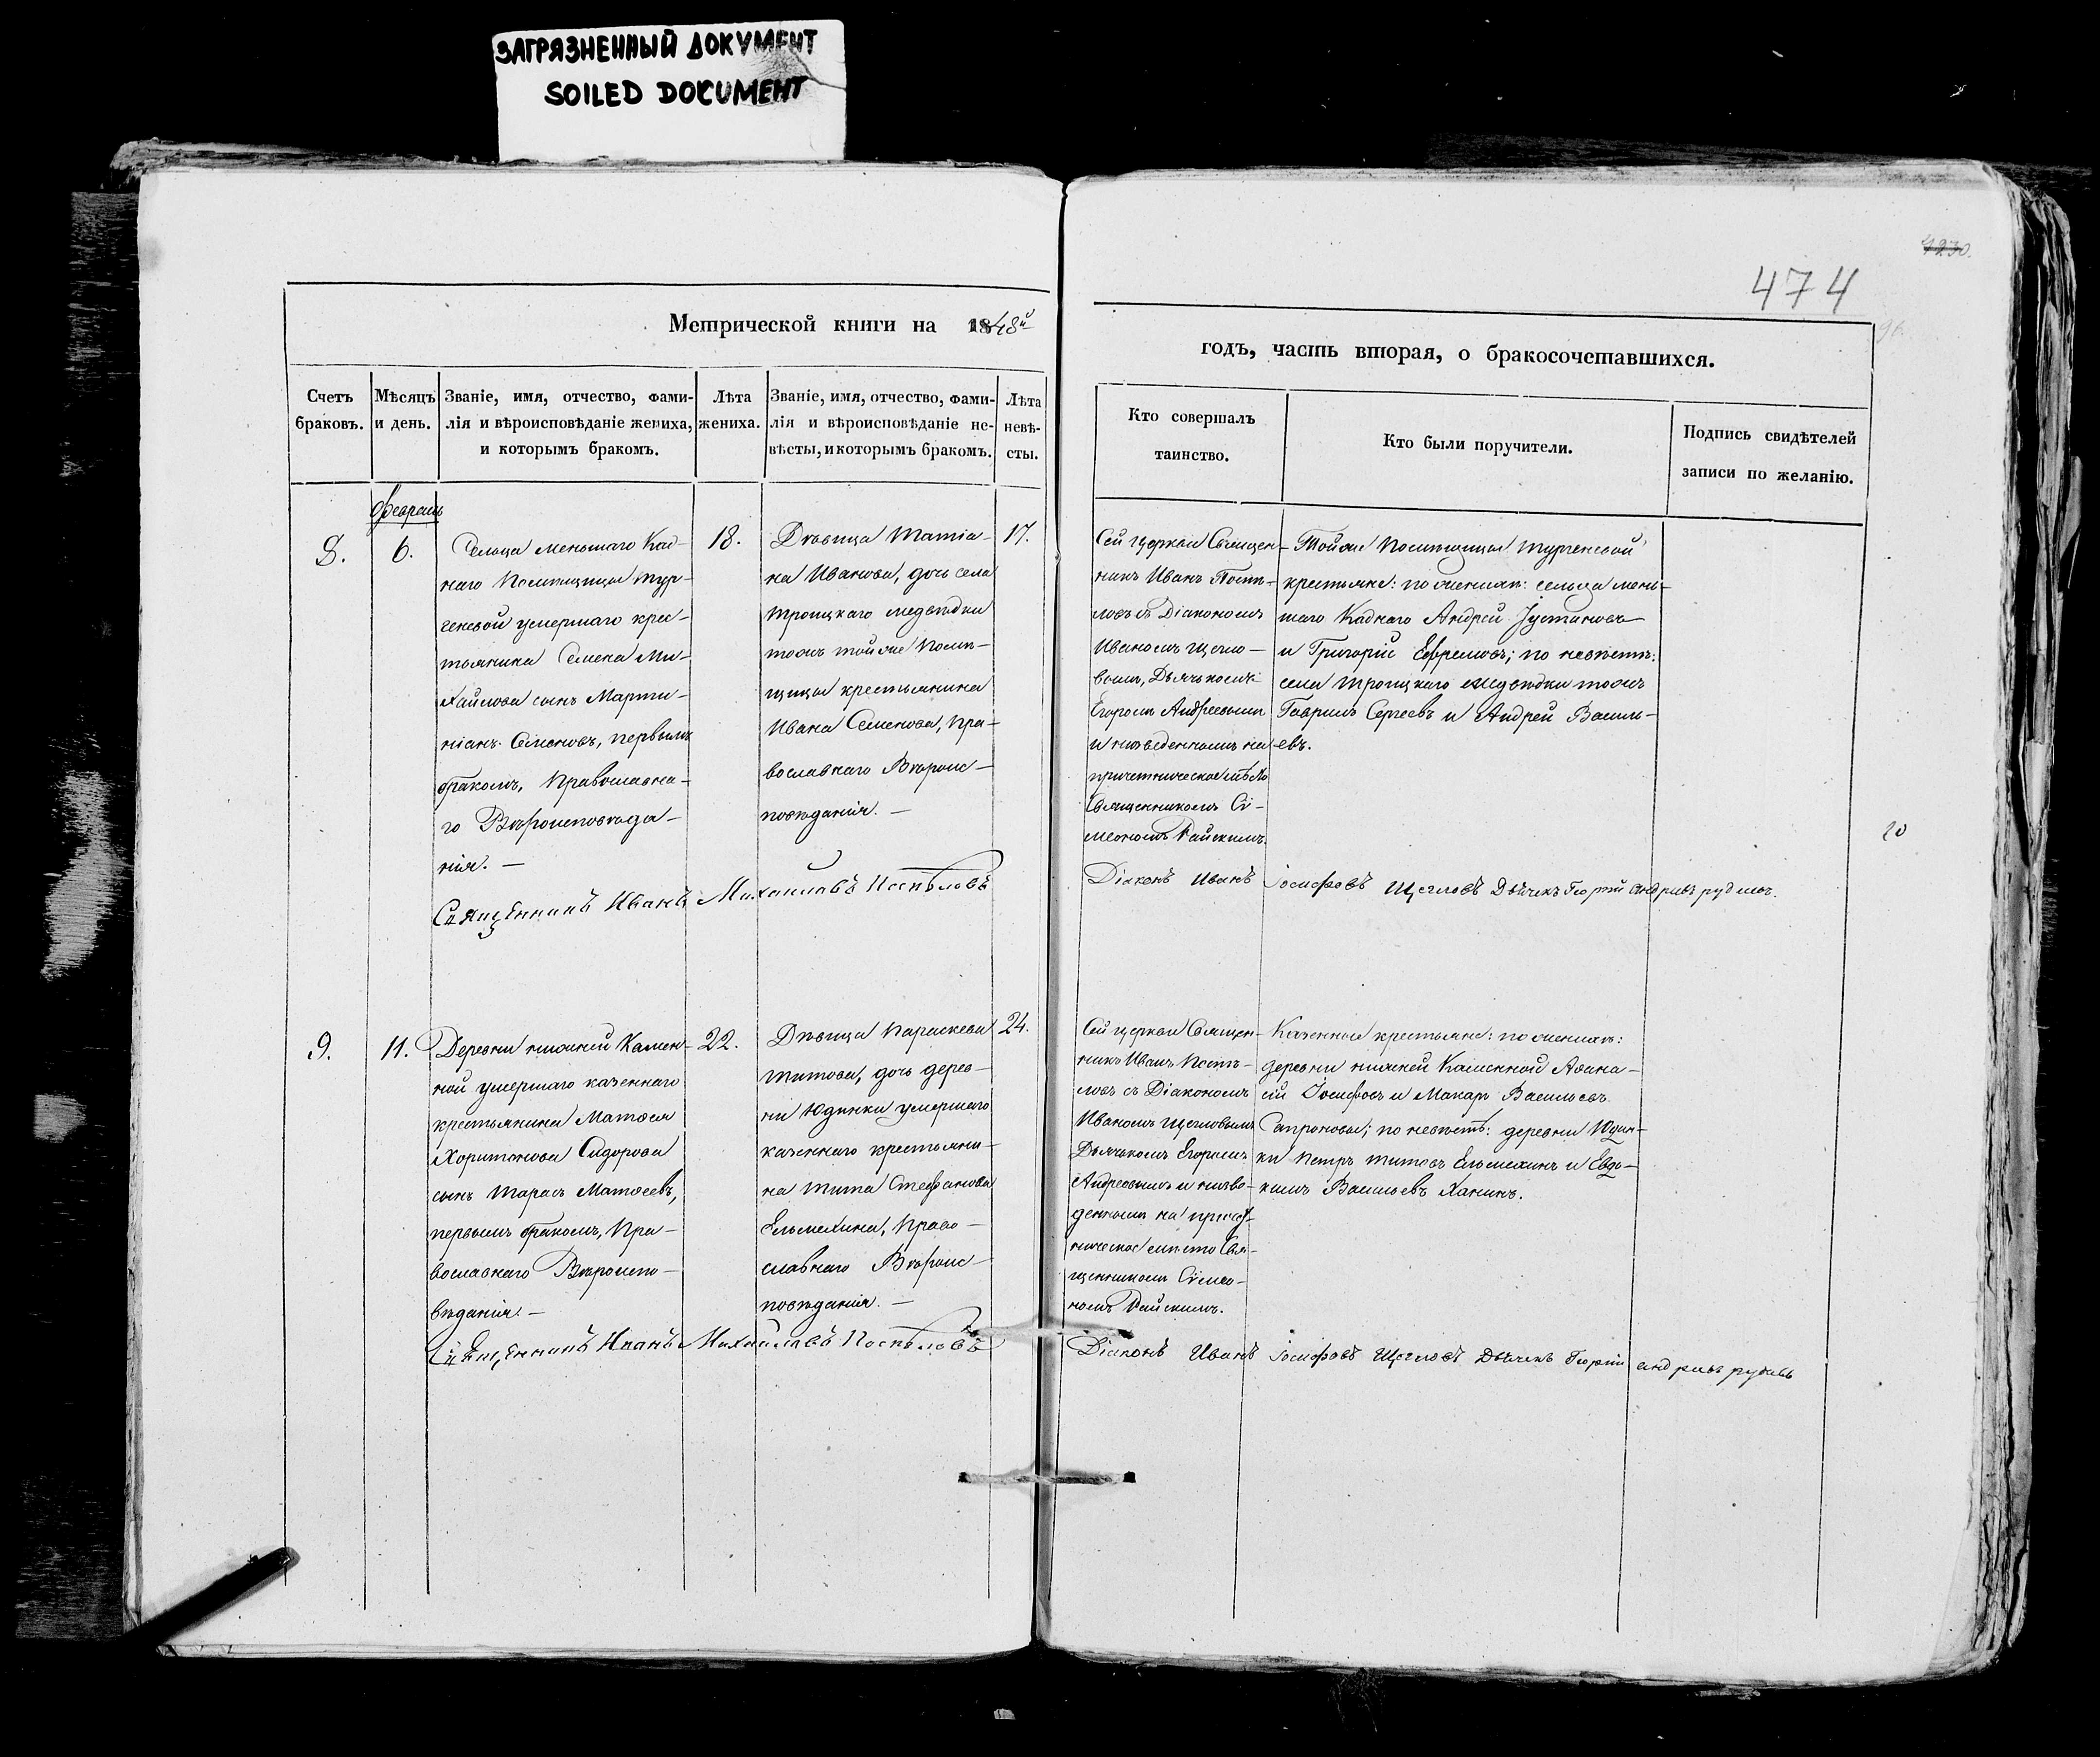 ЗАГРЯЗНЕННЫЙ ДОКУМЕНТ
SOILED DOCUMENT
474
Метрической книги на 1848й
годъ, часть вторая, о бракосочетавшихся.
Счетъ
браковъ.
Мѣсяцъ
и день.
Званіе, имя, отчество, фами-
лія и вѣроисповѣданіе жениха,
и которымъ бракомъ.
Лѣта
жениха.
Званіе, имя, отчество, фами-
лія и вѣроисповѣданіе не-
вѣсты, и которымъ бракомъ.
Лѣта
невѣ-
сты.
Кто совершалъ
таинство.
Кто были поручители.
Подпись свидѣтелей
записи по желанію.
8.
Февраль
6.
Сельца меньшаго Кад-
наго помѣщицы Тур-
геневой умершаго кре-
стьянина Семена Ми-
хайлова сынъ Марти-
ніанъ Семеновъ, первымъ
бракомъ, Православна-
го Вѣроисповѣда-
нія. —
18.
Дѣвица Татіа-
на Иванова, дочь села
Троицкаго Медвѣдки
тожъ той же помѣ-
щицы крестьянина
Ивана Семенова, Пра-
вославнаго Вѣроис-
повѣданія. —
17.
Сей церкви Священ-
никъ Иванъ Поспѣ-
ловъ съ Діакономъ
Иваномъ Щегло-
вымъ, Дьячькомъ
Егоромъ Андреевымъ
и низведеннымъ на
причетническое мѣсто
Священникомъ Си-
меономъ Райскимъ.
Той же помѣщицы Тургеневой
крестьяне: по женихѣ: сельца мень-
шаго Каднаго Андрей Іустиновъ
и Григорій Ефремовъ; по невѣстѣ:
села Троицкаго Медвѣдки тожъ
Гаврилъ Сергеевъ и Андрей Василь-
евъ.
Священникъ Иванъ Михаиловъ Поспѣловъ
Діаконъ Иванъ Іосифовъ Щегловъ Дьячекъ Георгій андриевъ
9.
11.
Деревни нижней Камен-
ной умершаго казеннаго
крестьянина Матѳея
Харитонова Сидорова
сынъ Тарасъ Матѳеевъ,
первымъ бракомъ, Пра-
вославнаго Вѣроиспо-
вѣданія. —
22.
Дѣвица Параскева
Титова, дочь дерев-
ни Юдинки умершаго
казеннаго крестьяни-
на Тита Стефанова
Ельмехина, Право-
славнаго Вѣроис-
повѣданія. —
24.
Сей церкви Священ-
никъ Иванъ Поспѣ-
ловъ съ Діакономъ
Иваномъ Щегловымъ
Дьячькомъ Егоромъ
Андреевымъ и низве-
деннымъ на причет-
ническое мѣсто Свя-
щенникомъ Симео-
номъ Райскимъ.
Казенные крестьяне: по женихѣ:
деревни нижней Каменной Аѳана-
сій Іосифовъ и Макаръ Васильевъ
Сапроновы; по невѣстѣ: деревни Юдин-
ки Петръ Титовъ Ельмехинъ и Евдо-
кимъ Васильевъ Ханинъ.
Священникъ Иванъ Михаиловъ Поспѣловъ
Діаконъ Иванъ Іосифовъ Щегловъ Дьячекъ Георгій андриевъ